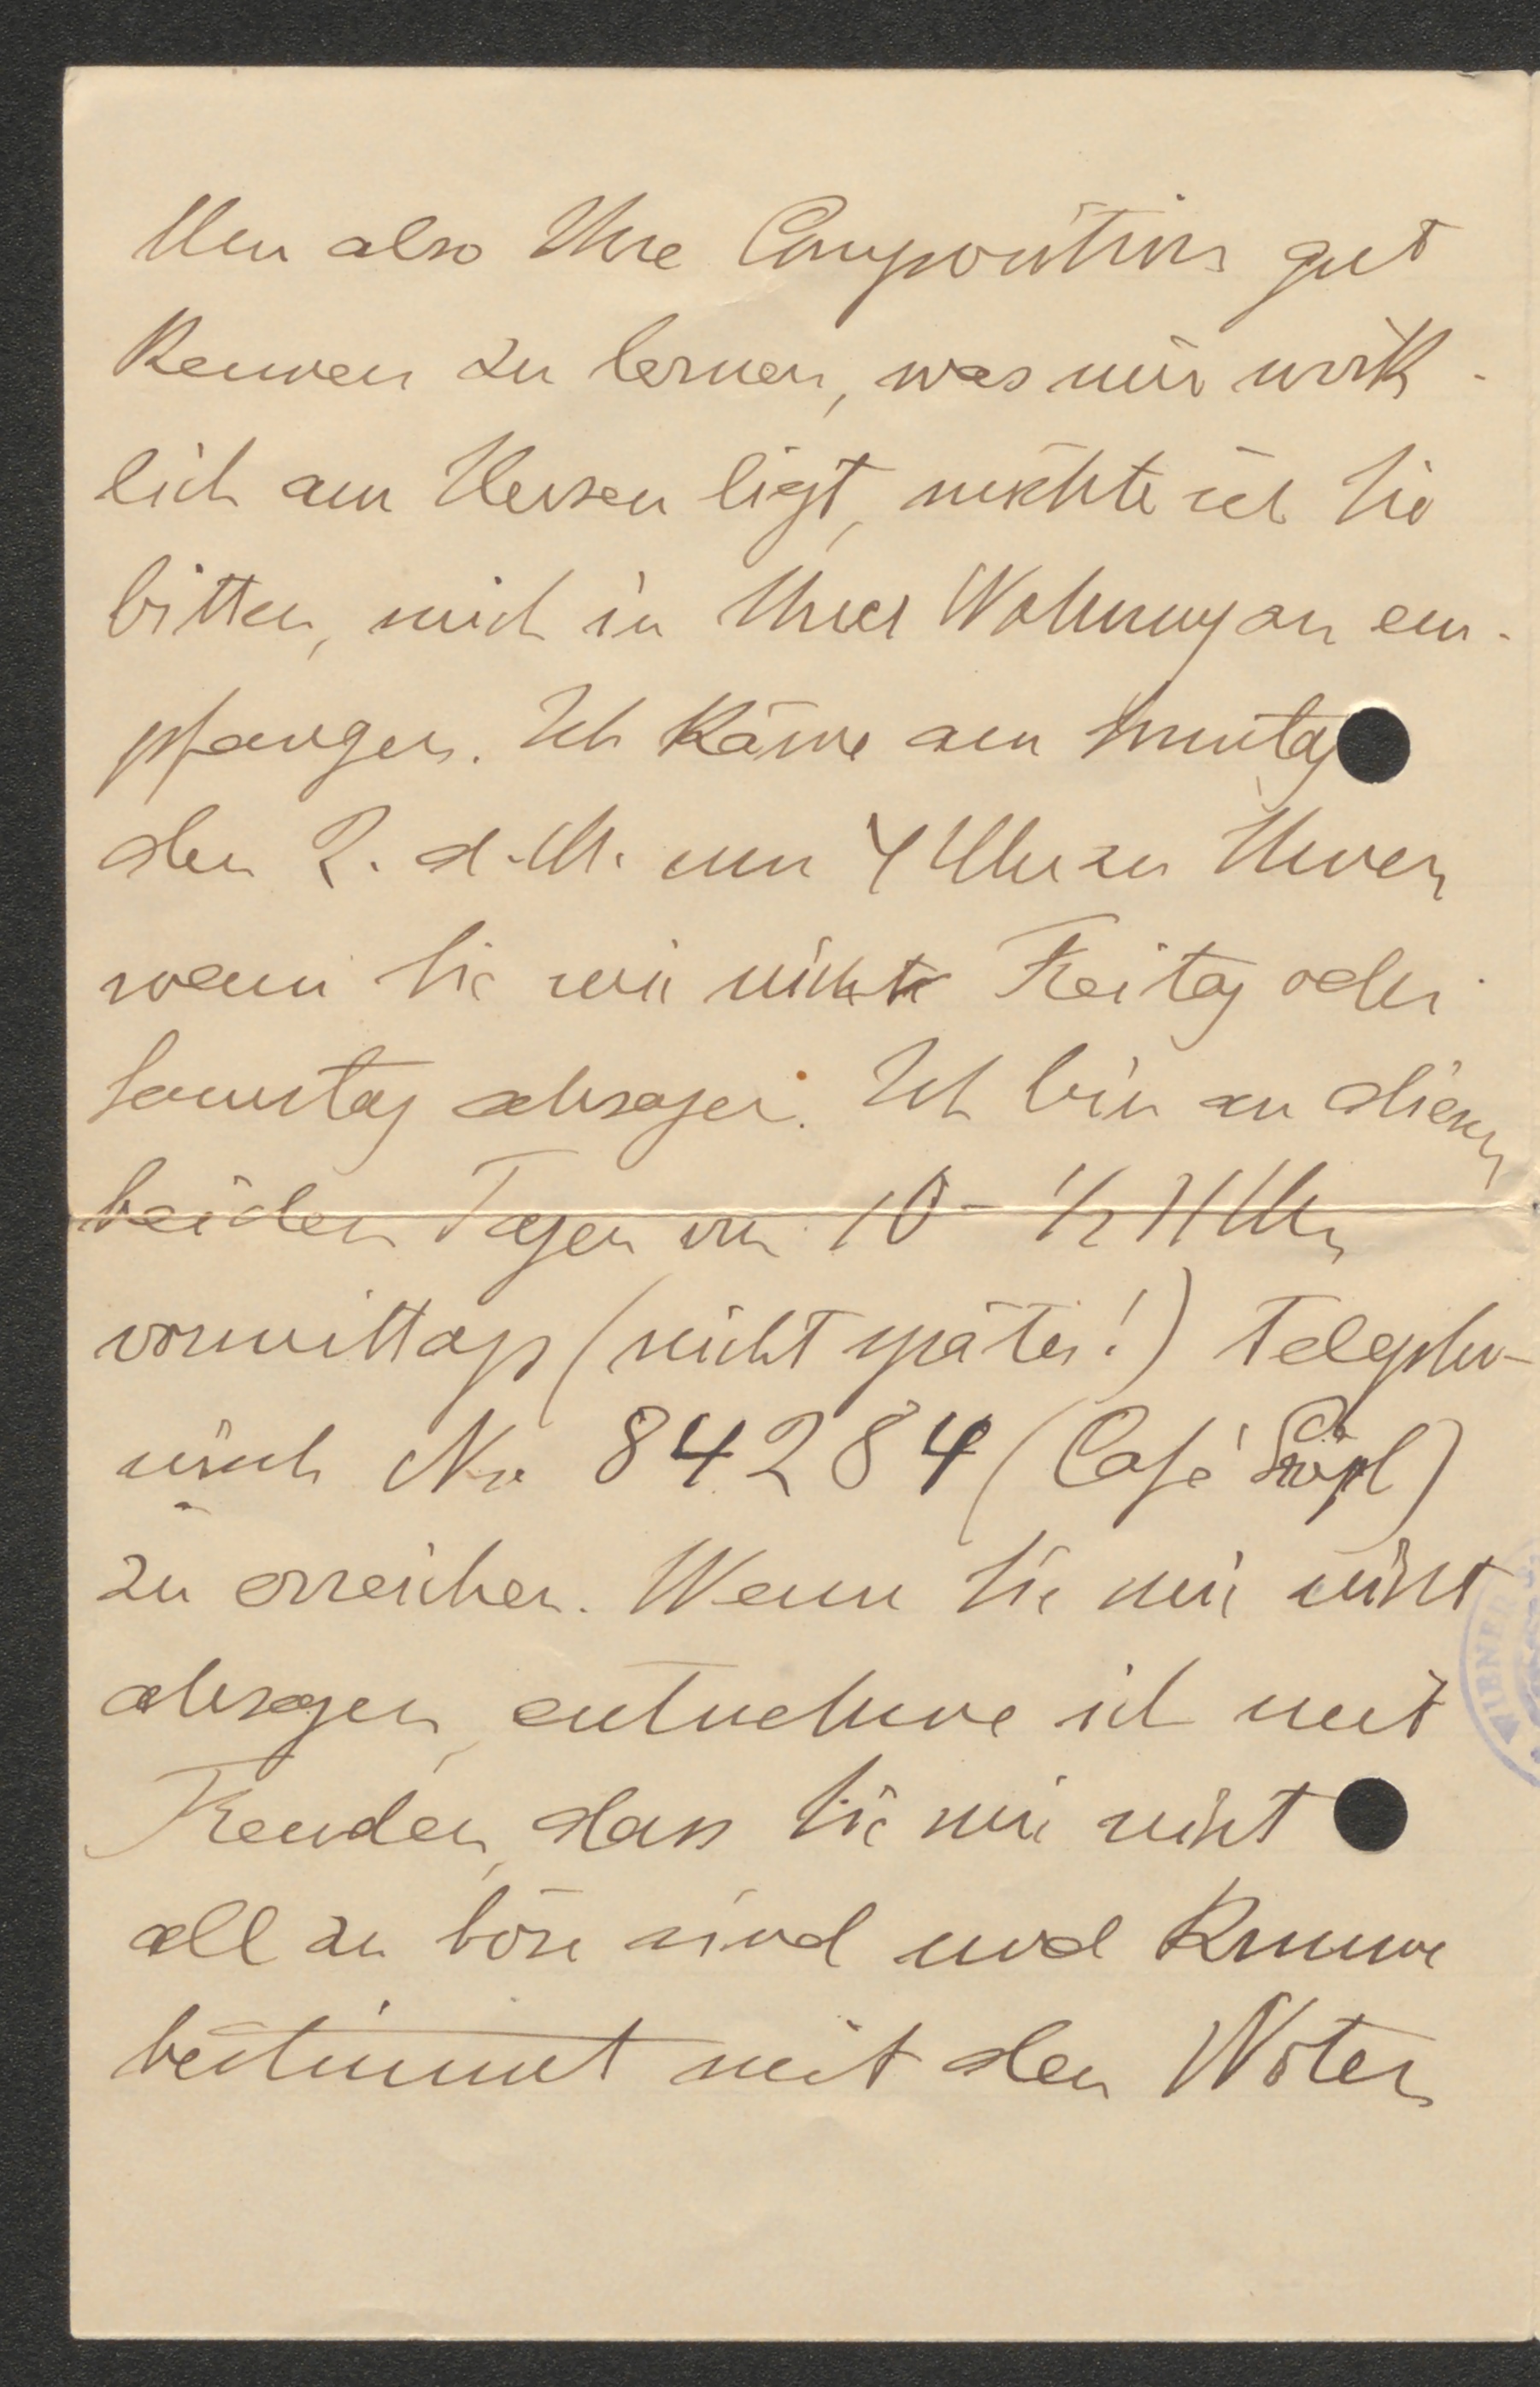 Um also Ihre Composition gut
kennen zu lernen, was mir wirk-
lich am Herzen ligt, möchte ich Sie
bitten, mich in Ihrer Wohnung zu em-
pfangen. Ich käme am Sonntag
den 2. d. M. um 4 Uhr zu Ihnen
wenn Sie mir nicht Freitag oder
Samstag absagen. Ich bin an diesen
beiden Tagen von 10 - ½ 11 Uhr
vormittags (nicht später!) telepho-
nisch No 84284 (Café)
zu erreichen. Wenn Sie mir nicht
absagen, entnehme ich mit
Freuden, dass Sie mir nicht
all zu böse sind und komme
bestimmt mit den Noten
WIENER